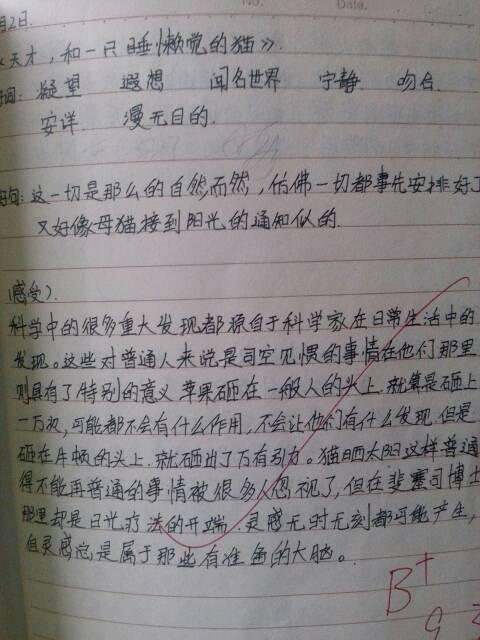 No. Date.
月2日.
《天才，和一只睡懒觉的猫》.
词: 凝望 遐想 闻名世界 宁静. 吻合.
安详. 漫无目的.
好句: 这一切是那么的自然而然，仿佛一切都事先安排好了
又好像母猫接到阳光的通知似的.
(感受).
科学中的很多重大发现都源自于科学家在日常生活中的
发现。这些对普通人来说是司空见惯的事情在他们那里
则具有了特别的意义.苹果砸在一般人的头上.就算是砸上
一万次，可能都不会有什么作用，不会让他们有什么发现.但是
砸在牛顿的头上.就砸出了万有引力。猫晒太阳这样普通
得不能再普通的事情被很多人忽视了,但在斐塞司博士
那里却是日光疗法的开端.灵感无时无刻都可能产生,
但灵感总是属于那些有准备的大脑。
B+